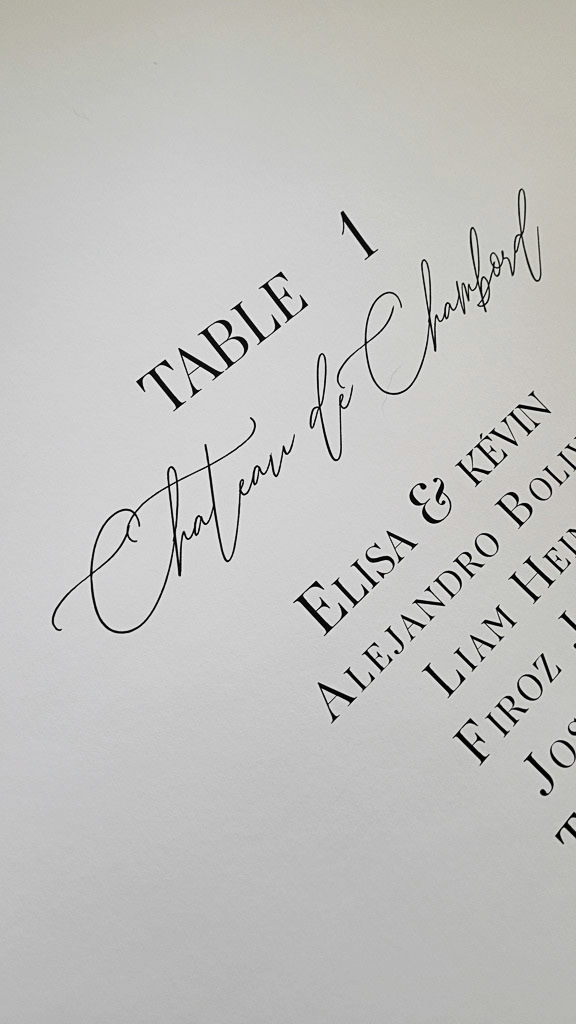 TABLE 1
Chateau de Chambord
ELISA & KÉVIN
ALEJANDRO
LIAM
FIROZ